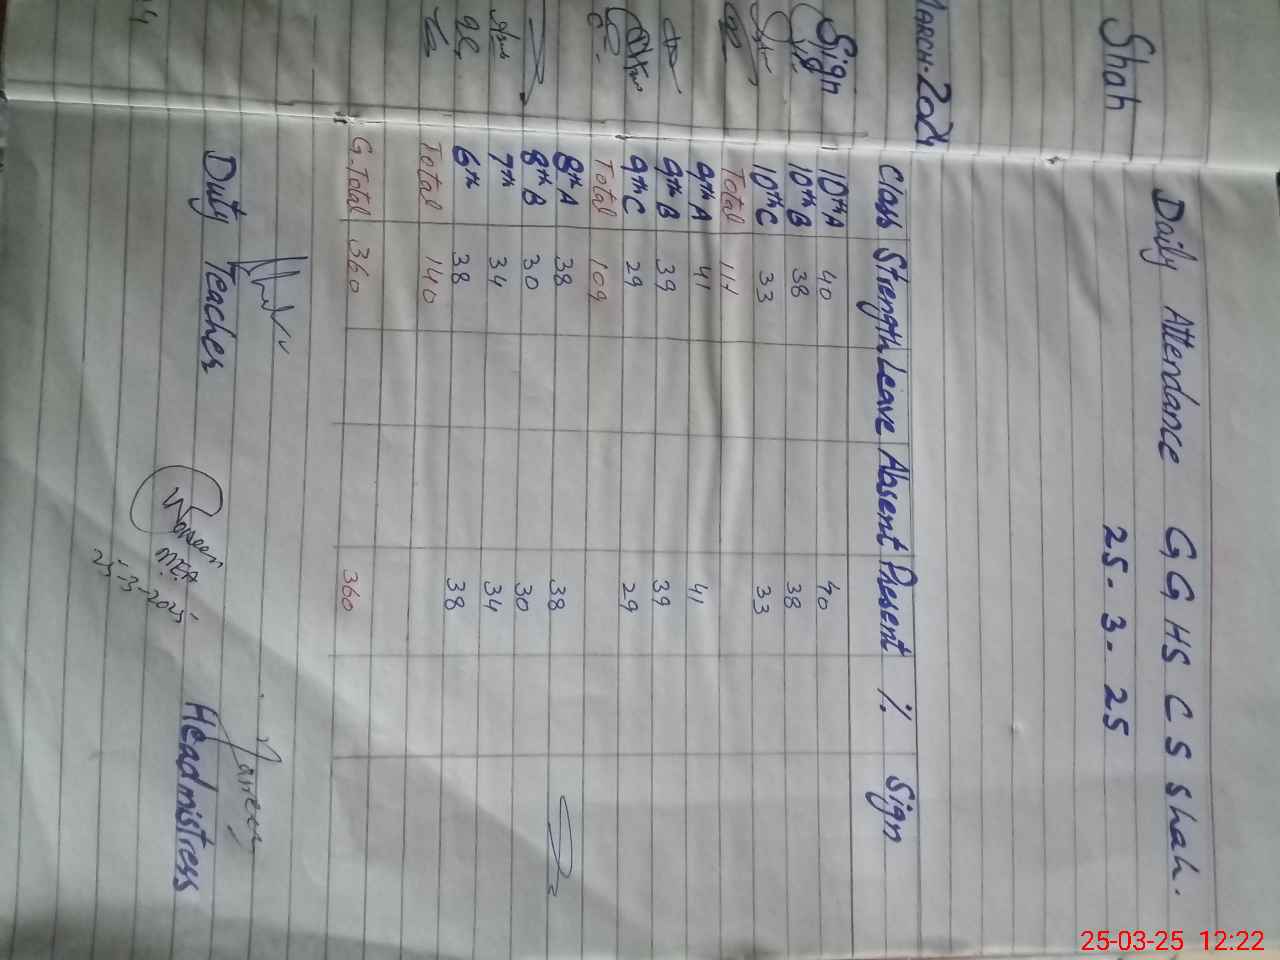 Shah
MARCH-2024
Sign
Daily Attendance GGHSCS Shah.
25.3.25
Class Strength Leave Absent Present % Sign
10th A 40 40
10th B 38 38
10th C 33 33
Total 111
9th A 41 41
9th B 39 39
9th C 29 29
Total 109
8th A 38 38
8th B 30 30
7th 34 34
6th 38 38
Total 140
G.Total 360 360
Duty Teacher
MEA
25-3-2025
Headmistress
25-03-25 12:22